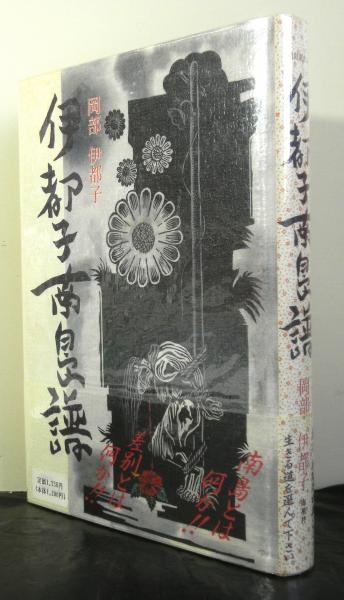 岡部 伊都子
伊都子南島譜
南島とは
何か!!
差別とは
何か!!
定価1,236円
(本体1,200円)
伊都子南島譜
岡部 伊都子
生きる道を選んで下さい